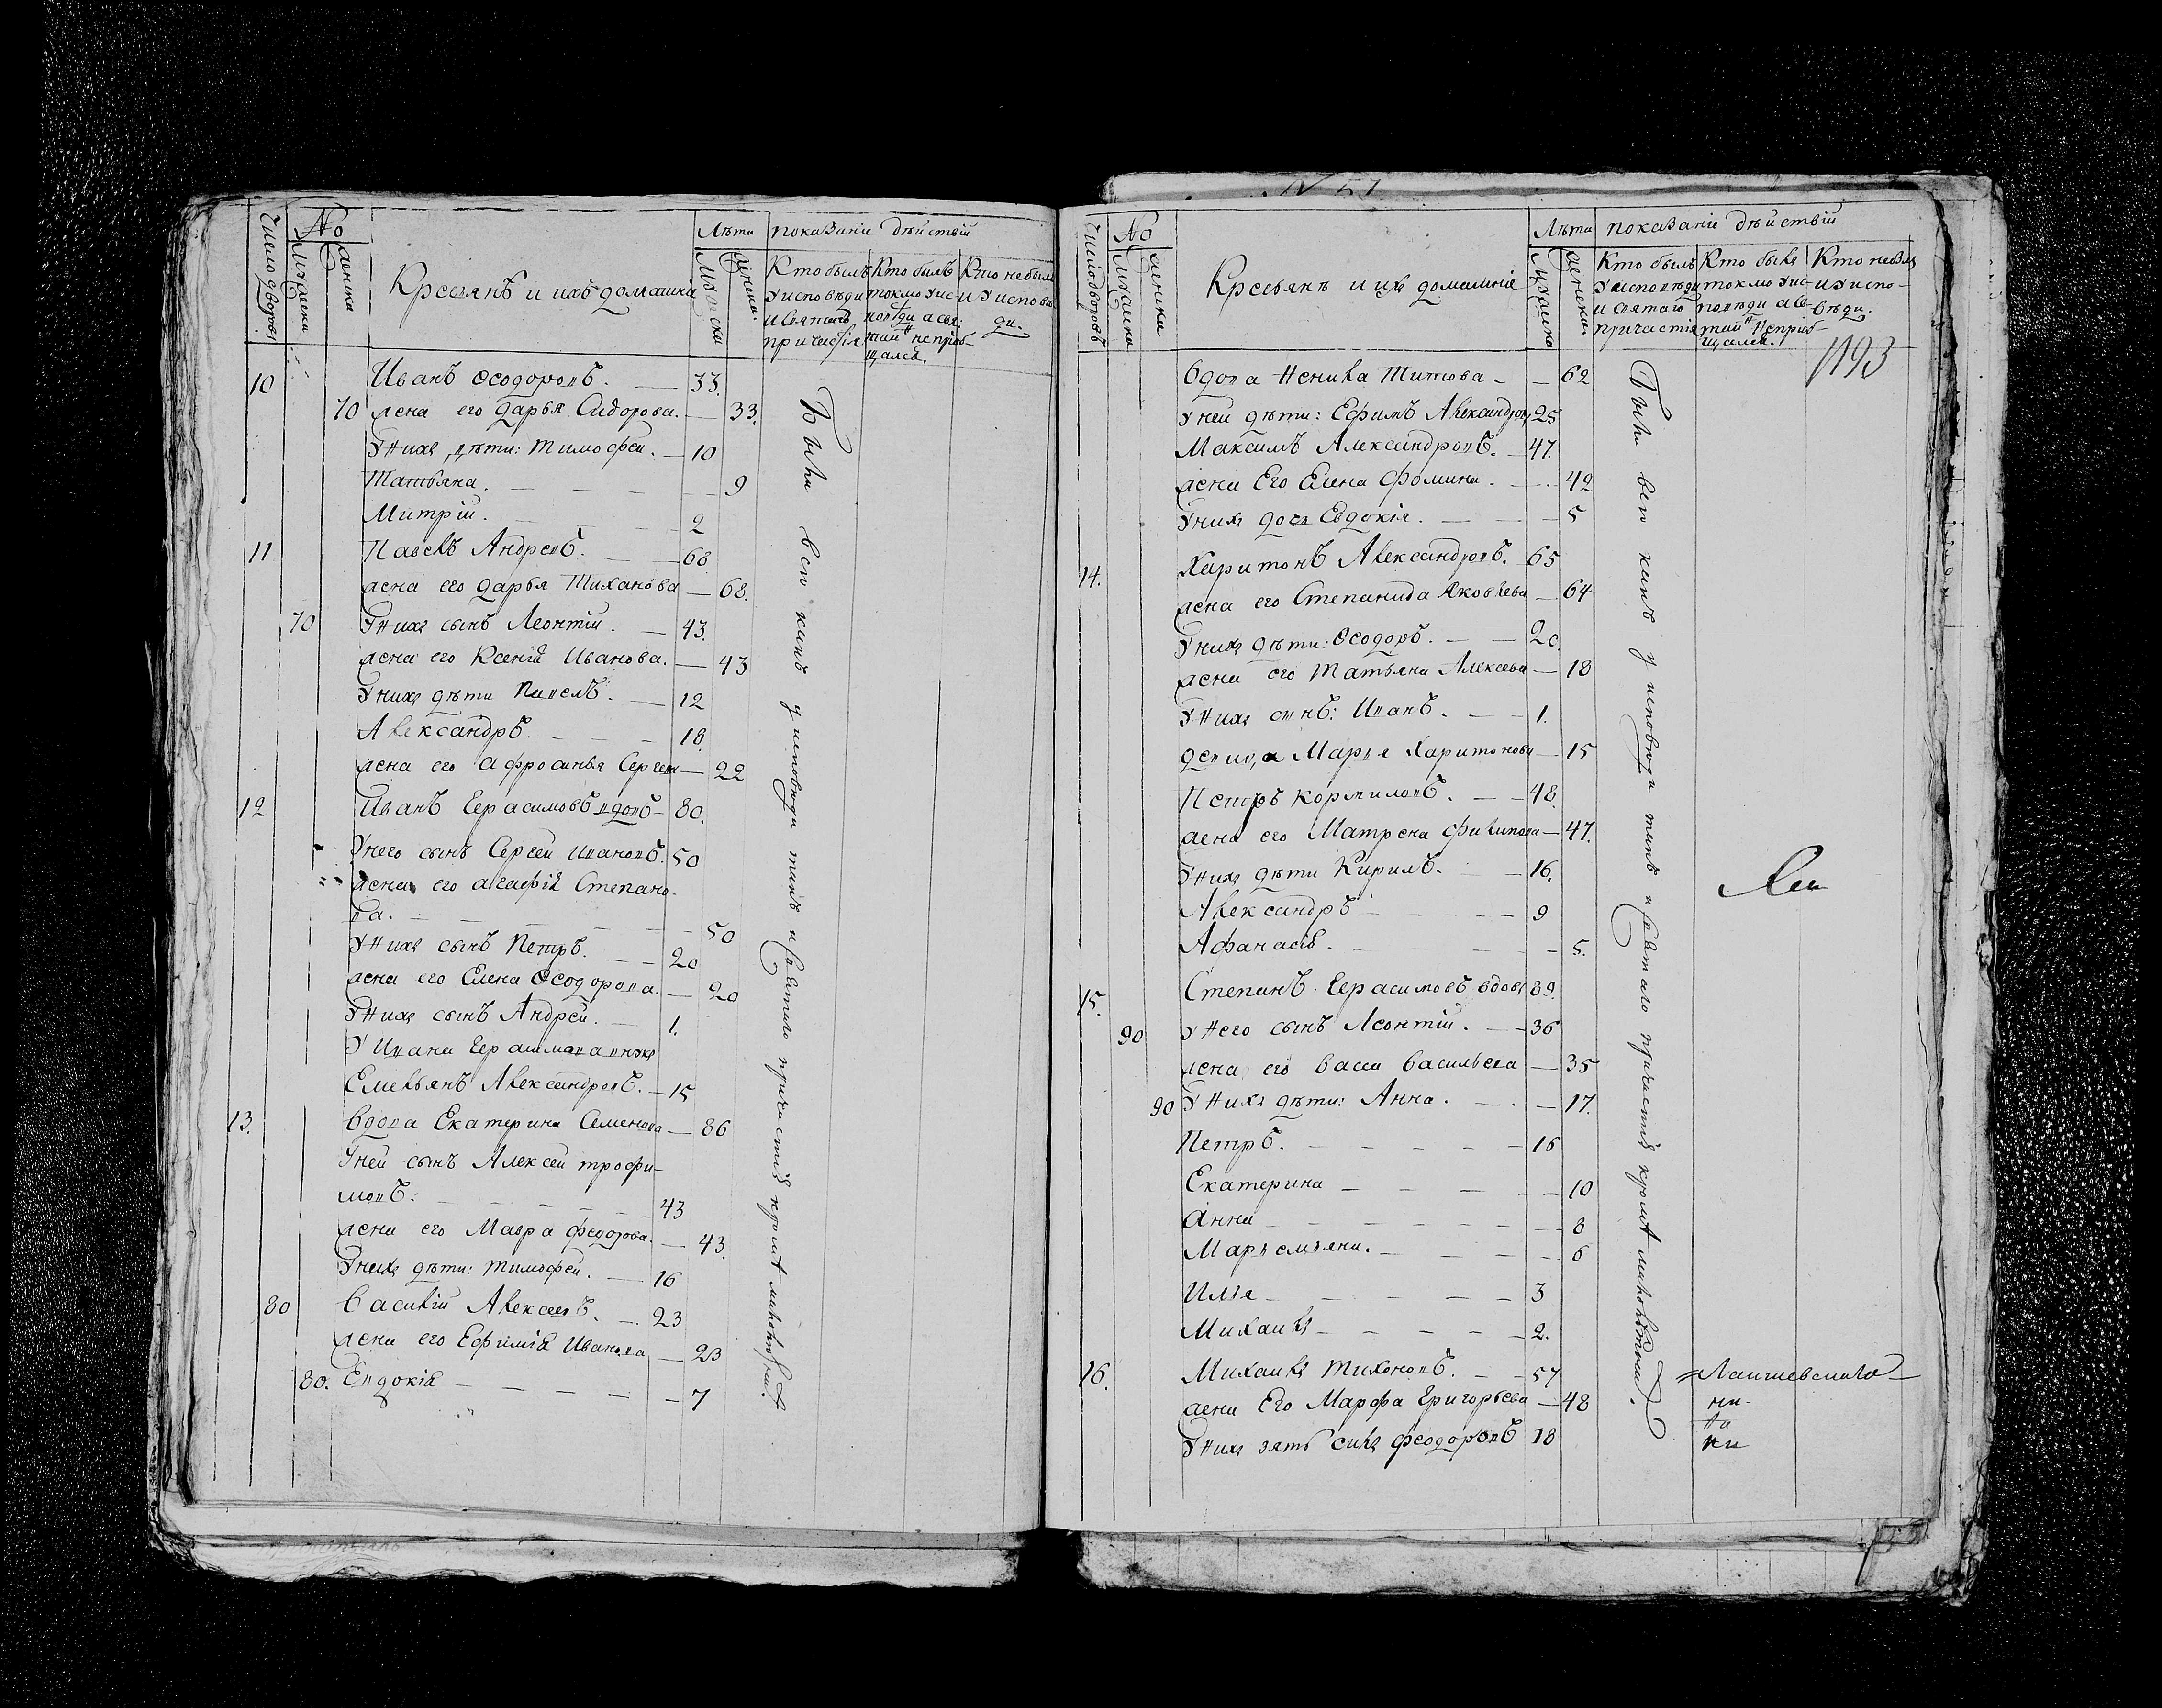 Число дворовъ
No
Мужска
женска
Крестянъ и ихъ домашни
Лѣта
Мужска
женска.
показание дѣйствiй
Кто былъ
у исповѣди
и святаго
причастiя
Кто былъ
токмо у ис
повѣди а свя:
тыи не прiоб
щался.
Кто небыл
и у исповѣ
ди.
10 Иванъ Ѳеодоровъ. — 33.
70 жена его дарья Сидорова. — 33.
У нихъ дѣти: Тимофеи. — 10
Татьяна. — — — 9
Митрiй. — — 2
11 Павелъ Андреевъ. — 68
жена его дарья Тиханова — 68.
70 У нихъ сынъ Леонтiи. — 43.
жена его Ксенiя Иванова. — 43
У нихъ дѣти Павелъ. — 12
Александръ. — — — 18.
жена его афросинья Сергеева — 22
12 Иванъ Герасимовъ вдовъ — 80.
У него сынъ Сергеи Ивановъ. 50
жена его агафiя Степано-
ва. — — — — 50
У нихъ сынъ Петръ. — — 20
жена его Елена Ѳеодорова. — 20
У нихъ сынъ Андреи. — 1.
У Ивана Герасимова внукъ
Емельянъ Александровъ. — 15
13. вдова Екатерина Семенова — 86
У ней сынъ Алексеи трофи-
мовъ. — — — — 43
жена его Мавра федорова. — 43.
У нихъ дѣти: Тимофеи. — 16
80 василiй Алексеевъ. — 23
жена его Ефимiя Иванова — 23
80. Евдокiя — — — — — 7
Были вси какъ у исповѣди такъ и святаго причастiя кромѣ малолѣтныхъ.
Число дворовъ
No
Мужска
женска
Крестьянъ и ихъ домашнiе
Лѣта
Мужска
женска.
показанiе дѣйствiй
Кто былъ
у исповѣди
и святаго
причастiя
Кто былъ
токмо у ис-
повѣди а св-
тыи не прiоб-
щался.
Кто небылъ
и у испо-
вѣди.
1193
вдова Ксенiя Титова — — 62
у ней дѣти: Ефимъ Александровъ 25
Максимъ Александровъ. — 47.
жена Его Елена Фомина. — — 42
у нихъ дочь Евдокiя. — — — 5
14. Харитонъ Александровъ. 65
жена его Степанида Яковлева — 64
У нихъ дѣти: Ѳеодоръ. — — 20.
жена его Татьяна Алексеева — 18
У нихъ сынъ: Иванъ. — — 1.
девица Марья Харитонова — 15
Петръ Кормиловъ. — — 48.
жена его Матрена филипова — 47.
У нихъ дѣти Кирилъ. — 16.
Александръ — — — — 9
Афанасiя. — — — 5.
15. Степанъ Герасимовъ вдовъ 89.
90 У него сынъ Леонтiи. — — 36
жена его васса васильева — 35
90 У нихъ дѣти: Анна. — — — 17.
Петръ. — — — — — 16
Екатерина — — — — — 10
Анна — — — — — — 8
Марья — — — — 6
Илья — — — — — — 3
Михаилъ — — — — — 2.
16. Михаилъ Тихоновъ. — — 57
жена Его Марфа Григорьева — 48
У нихъ зять Сила феодоровъ 18
Были вси какъ у исповѣди такъ и святаго причастiя кромѣ малолѣтныхъ.